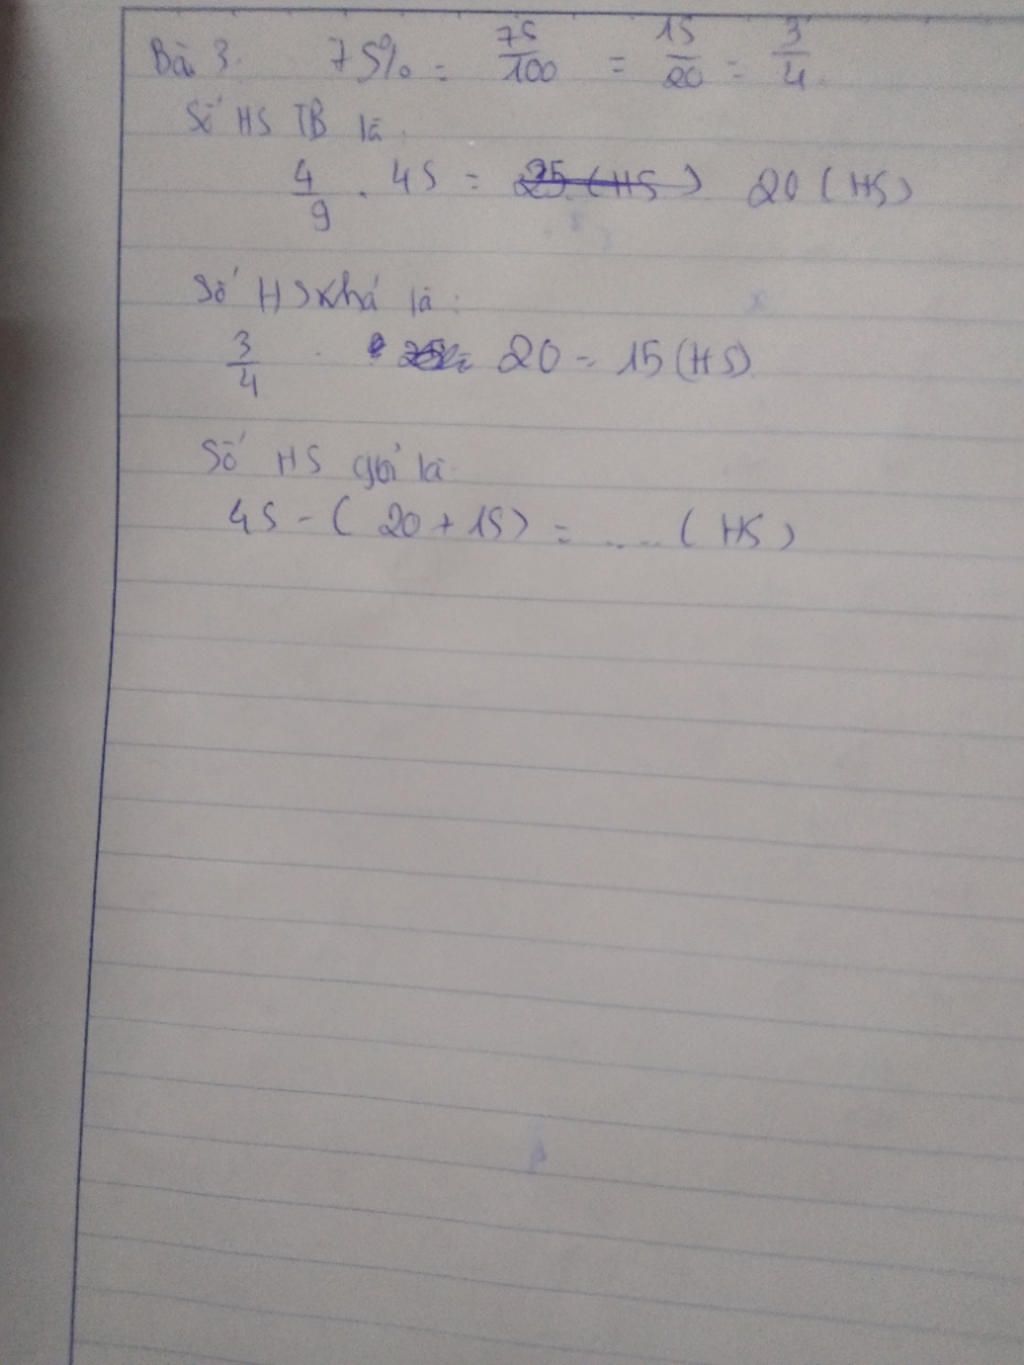 Bài 3. 75% = 75/100 = 15/20 = 3/4.
Số HS TB là.
4/9 . 45 = 25 (HS) 20 (HS)
Số HS Khá là:
3/4 . 20 = 15 (HS)
Số HS giỏi là
45 - ( 20 + 15) = ..... ( HS )